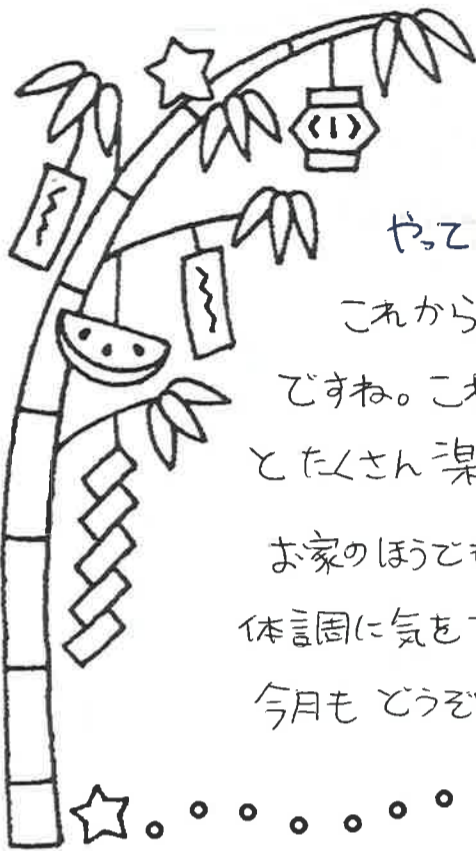 やって
これから
ですね。これ
とたくさん楽
お家のほうでも
体調に気をつ
今月もどうぞ